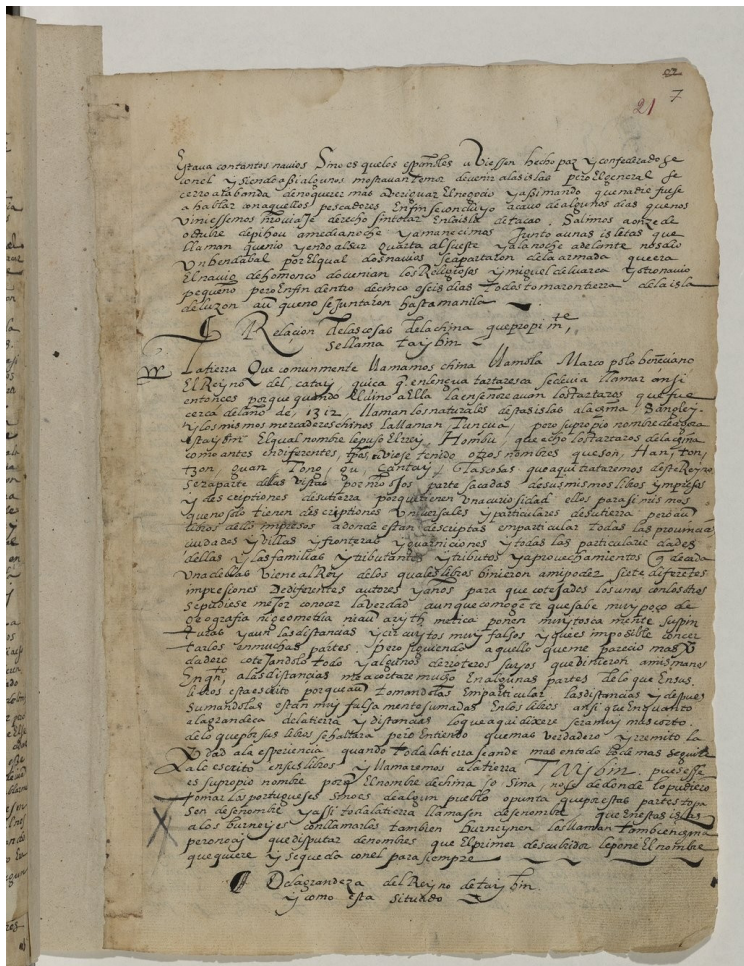 02
21 7
Estava con tantos navios Sino es que los españoles uViessen hecho paz y confederadose
con el y siendo assi algunos mostravan temor de venir a las islas pero el general se
cerro a la banda de no querer mas averiguar El negocio y assi mando que nadie fuese
a hablar con aquellos pescadores En fin se concluyo a cavo de algunos dias que nos
viniessemos nro viaje derecho sin tocar En la isla de tacao. Salimos a onze de
otubre de pihou a medianoche y amanecimos Junto a unas isletas que
llaman quenio yendo al sur quarta al sueste y a la noche adelante nos dio
Un bendabal por El qual dos navios se apartaron de la armada que era
El navio de homonco do venian los Religiosos y miguel de luarca y otro navio
pequeño pero En fin dentro de cinco o seis dias todos tomaron tierra de la isla
de luzon aunque no se juntaron hasta manila
Relacion de las cosas de la china que propiamte
se llama taybin
La tierra Que comunmente llamamos china llamola Marco polo beneciano
El Reyno del catay, quiça q en lengua tartaresca se devia llamar ansi
entonces porque quando El vino a Ella la enseñoreavan los tartaros que fue
cerca del año de, 1312, llaman los naturales destas islas a la china Sangley.
y los mismos mercaderes chinos la llaman, Tunçua, pero su propio nombre de agora
es taybin El qual nombre le puso El rey, Hombu, que echo los tartaros de la china
como antes en diferentes, tpos, a viose tenido otros nombres que son, Han, ton,
tzon, guan, Tong, gu, Cantay, G las cosas que aqui trataremos deste Reyno
seran parte dellas vistas por nros ojos, parte sacadas de sus mismos libros ympresos
y descriptiones de su tierra porque tienen una curiosidad ellos para si mismos
que no solo tienen descriptiones Universales y particulares de su tierra pero aun
libros dello impresos a donde estan descriptas em particular todas las provincias
ciudades y Villas y fronteras y guarniciones y todas las particularidades
dellas y las familias y tributantes y tributos y aprovechamientos q de cada
Una dellas Viene al Rey de los quales libros binieron a mi poder siete diferetes
impresiones De diferentes autores y años para que cotejados los unos con los otros
se pudiese mejor conocer la verdad aunque como gete que sabe muy poco de
geografia ni geometria ni aun aryth metica ponen muy tosca mente sus pin
turas y aun las distancias y circuytos muy falsos y que es imposible concer
tarlos en muchas partes. Pero siguiendo a aquello que me parecio mas V
dadero cotejandolo todo y algunos derroteros suyos que dineron a mis manos
En quto, a las distancias me acortare mucho En algunas partes de lo que En sus
libros esta escrito porque aun tomandolas Em particular las distancias y despues
sumandolas estan muy falsamente sumadas En los libros ansi que En quanto
a la grandeca de la tierra y distancias lo que aqui dixere sera muy mas corto.
de lo que por sus libros se hallara pero Entiendo que mas verdadero y rremito la
Vdad a la esperiencia quando toda la tierra se ande mas en todo lo demas seguire
a lo escrito en sus libros y llamaremos a la tierra TAYbin. pues esse
es su propio nombre porq El nombre de china, o, sina, no se de donde lo pudiero
tomar los portugueses sino es de algun pueblo o punta que por estas partes topa
sen dese nombre y assi toda la tierra llamasen dese nombre, que en estas islas
a los burneyes con llamarlos tambien burneynen los llaman tambien
pero no ay que disputar de nombres que El primer descubridor le pone El nombre
que quiere y se queda con el para siempre
De la grandeza del Reyno de taybin.
y como esta situado